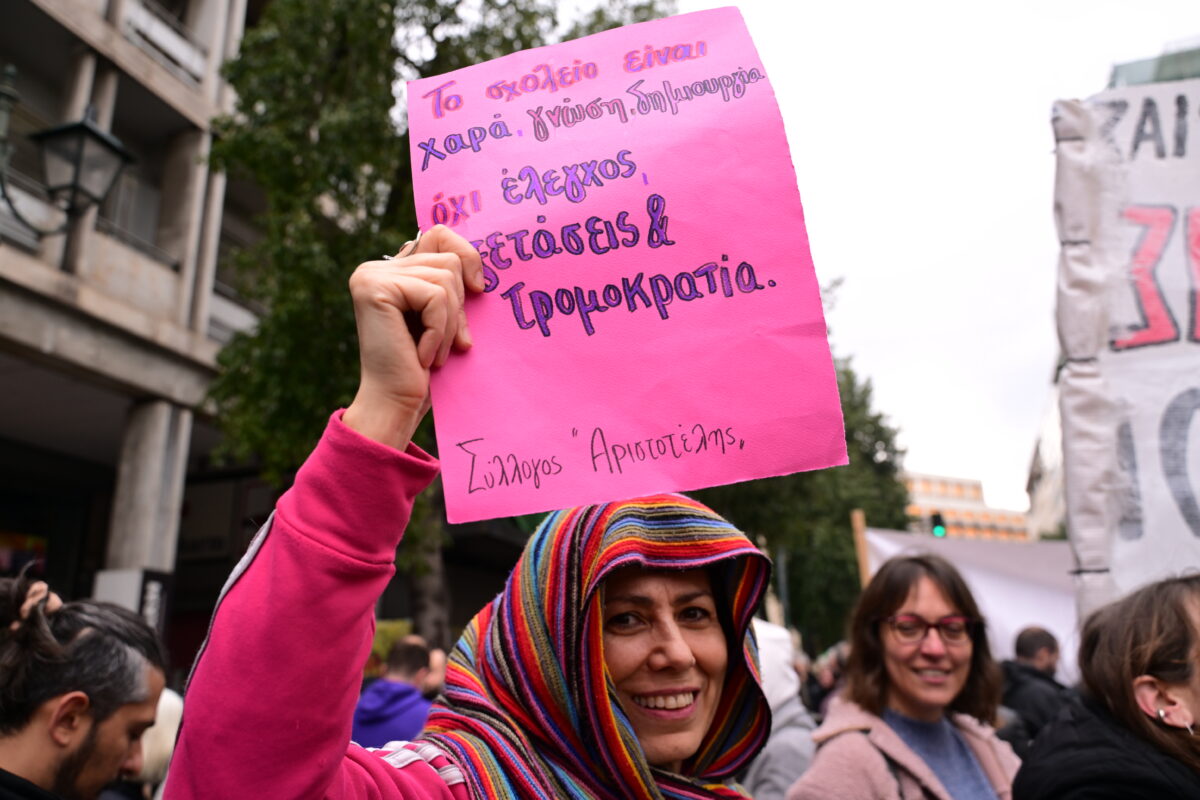 Το σχολείο είναι
χαρά, γνώση, δημιουργία
όχι έλεγχος,
εξετάσεις &
τρομοκρατία.
Σύλλογος "Αριστοτέλης"
ΣΑΙ